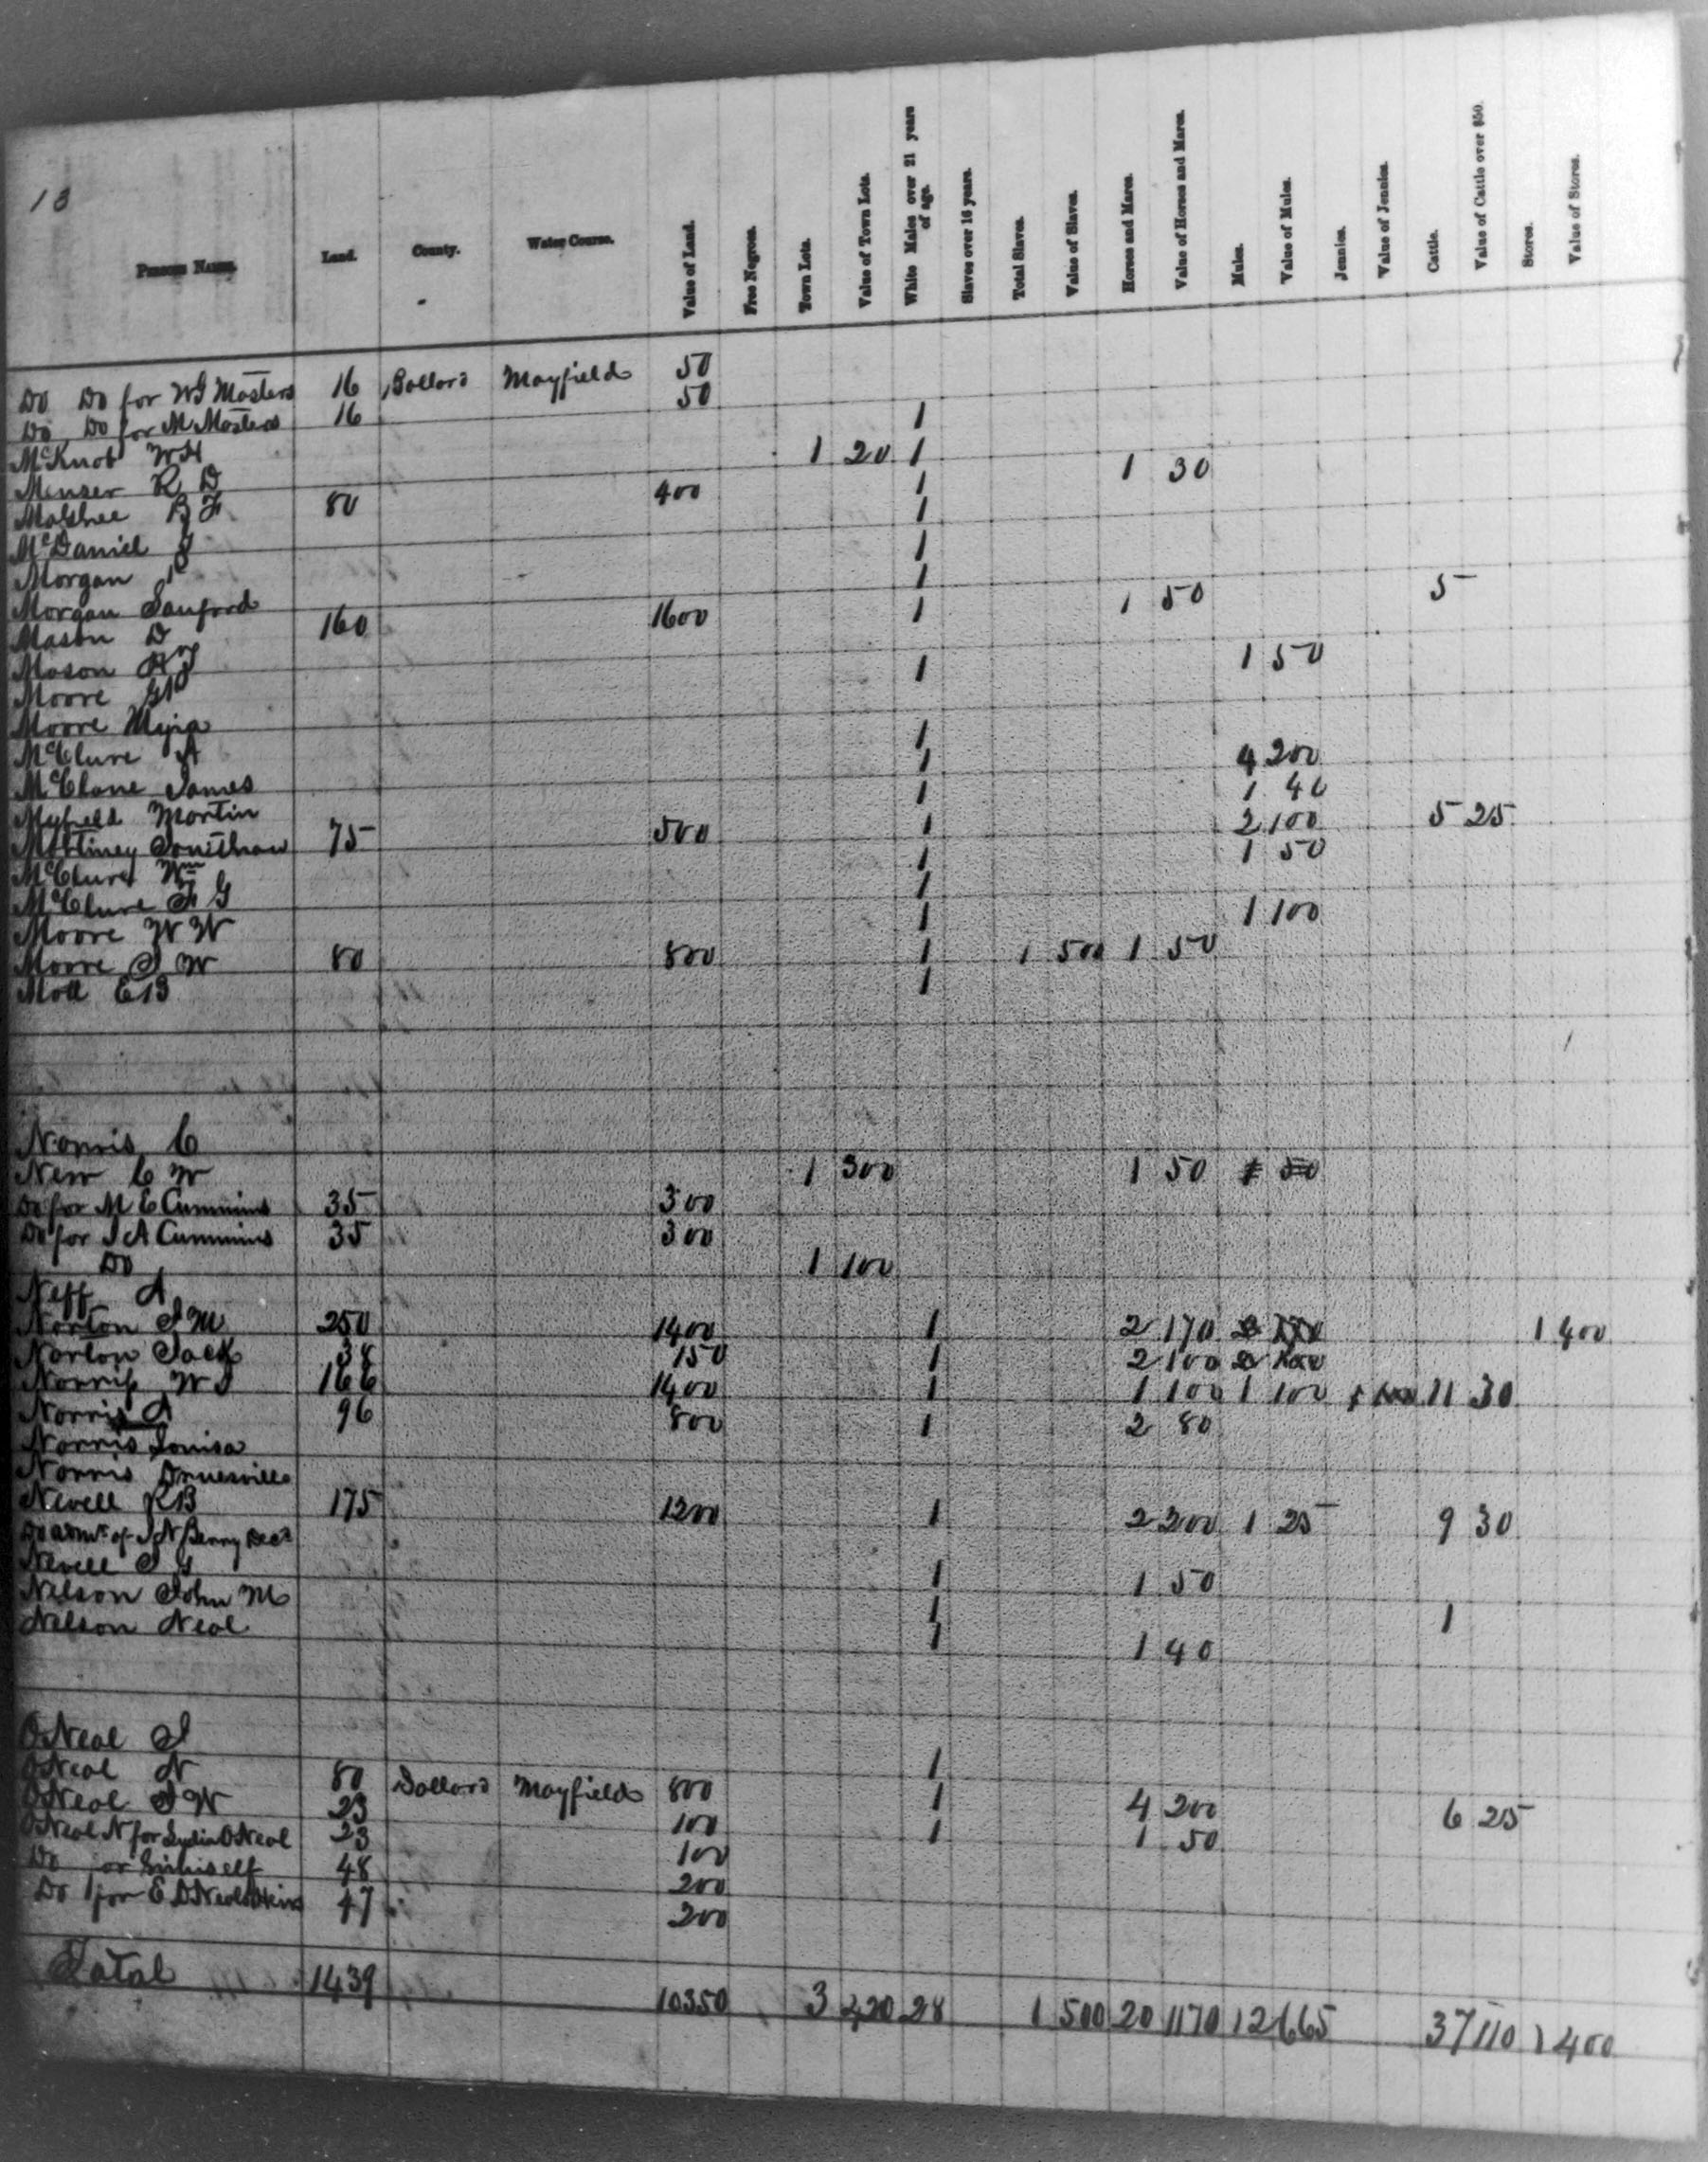 18
Persons Names. Land. County. Water Course. Value of Land. Free Negroes. Town Lots. Value of Town Lots. White Males over 21 years of age. Slaves over 16 years. Total Slaves. Value of Slaves. Horses and Mares. Value of Horses and Mares. Mules. Value of Mules. Jennies. Value of Jennies. Cattle. Value of Cattle over $50. Stores. Value of Stores.
Do Do for WG Masters 16 Ballard Mayfield 50
Do Do for M Masters 16 50
McKnot WH 1
Menser R D 1 20 1 1 30
B F 80 400 1
McDaniel J 1
Morgan 1
Morgan Sanford 1
Mason D 160 1600 1 1 50 5
Mason
Moore 1 1 50
Moore
McClure A 1
McClane James 1 4 200
Myfield Martin 1 1 40
75 500 1 2 100 5 25
McClure Wm 1 1 50
McClure F G 1
Moore W W 1 1 100
Moore J W 80 800 1 1 500 1 50
Moll EB 1
Norris C
New C W 1 300 1 50 1 50
Do for M E Cummins 35 300
Do for J A Cummins 35 300
Do 1 100
Neff A
Norton J M 250 1400 1 2 170 2 1 400
Norton Jack 38 150 1 2 100 2
Norris W J 166 1400 1 1 100 1 100 1 11 30
Norris A 96 800 1 2 80
Norris Louisa
Norris
Nevell RB 175 1200 1 2 200 1 25 9 30
Do admr of J N Berry Decd
Nevell J G 1 1 50
Nelson John M 1 1
Nelson Neal 1 1 40
ONeal J 1
ONeal N 80 Ballard Mayfield 800 1 4 200 6 25
ONeal J W 23 100 1 1 50
ONeal N for Lydia ONeal 23 100
Do for 48 200
Do for E ONeals Heirs 47 200
Total 1439 10350 3 420 28 1 500 20 1170 12 665 37 110 1 400